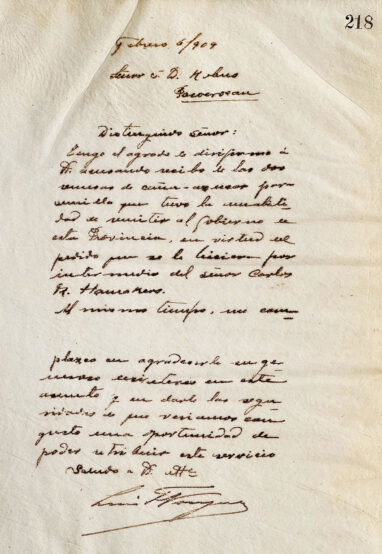 218
Febrero 6/909
Señor
Distinguido Señor:
Tengo el agrado de dirijirme á
U. acusando recibo de las dos
remesas de caña-azucar por
semilla que tuvo la
de remitir al Gobierno de
esta Provincia, en virtud del
pedido que se le hiciera por
intermedio del señor Carlos
Al mismo tiempo, me com-
plazco en agradecerle su ge-
neroso en este
asunto y en darle las segu-
ridades de que veriamos con
gusto una oportunidad de
poder retribuir este servicio
Saludo a U. Att